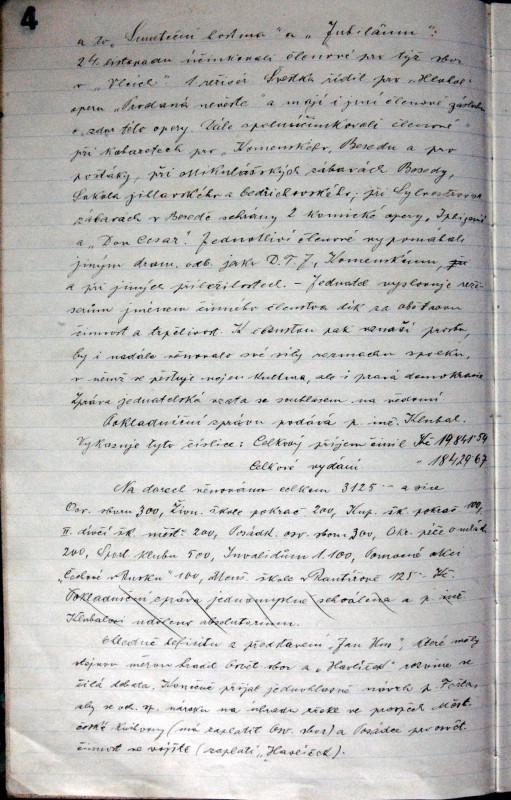 4
a to „Smuteční hostina" a „Jubiläum":
24. listopadu účinkovali členové pro týž sbor
v „Vlčích". I. režisér Svatek řídil pro „Hlahol"
operu „Prodaná nevěsta" a mají i jiní členové zásluhu
o zdar této opery. Dále spoluúčinkovali členové
při kabaretech pro „Komenského, Besedu a pro
pošťáky, při Mikulášských zábavách Besedy,
Sokola jihlavského a bedřichovského, při Sylvestrov.
zábavách v Besedě sehrány 2 komické opery, Iphigenie
a „Don Cesar". Jednotliví členové vypomáhali
jiným dram. odb. jako D.T.J., Komenskému,
a při jiných příležitostech. – Jednatel vyslovuje reži-
serům jménem činného členstva dík za obětavou
činnost a trpělivost. K členstvu pak vznáší prosbu,
by i nadále věnovalo své síly rozmachu spolku,
v němž se pěstuje nejen kultura, ale i pravá demokracie.
Zpráva jednatelská vzata se souhlasem na vědomí.
Pokladniční zprávu podává p. inž. Klubal.
Vykazuje tyto číslice: Celkový příjem činil Kč 19841·54
Celkové vydání " 18429·67
Na darech věnováno celkem 3125 – a sice
Osv. sboru 300, Živn. škole pokrač. 200, Kup. šk. pokrač. 100,
II. dívčí šk. měšť. 200, Posádk. osv. sboru 300, Okr. péče o mládež
200, Sport klubu 500, Invalidům 1.100, Pomocné akci
„Čechové v Rusku" 100, Menš. škole v Rantířově 125 – Kč.
Pokladniční zpráva jednomyslně schválena a p. inž.
Klubalovi uděleno absolutorium.
Ohledně deficitu z představení „Jan Hus", které měly
stejnou měrou hradit Osvět. sbor a „Havlíček" rozvine se
čilá debata. Konečně přijat jednohlasně návrh p.
aby se od. sp. nároku na úhradu zřekl ve prospěch Měst.
české knihovny (má zaplatit Osv. sbor) a Posádce pro osvět.
činnost ve vojště (zaplatí „Havlíček).